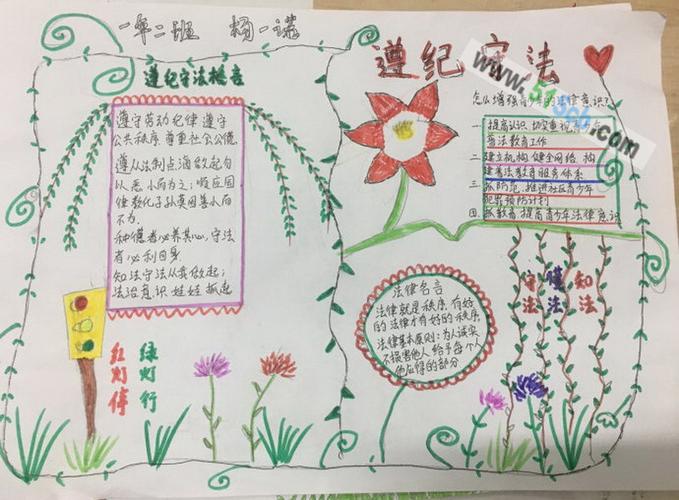 一年二班 杨一诺
遵纪守法
www.5136b.com
遵纪守法格言
遵守劳动纪律 遵守
公共秩序 尊重社会公德
遵从法制点滴做起勿
以恶小而为之；顺应国
律教化子孙莫因善小而
不为.
种德者必养其心，守法
有必利己身
知法守法从真做起；
法治意识 娃娃抓起
红灯停
绿灯行
怎么增强青少年的法律意识？
一 提高认识 切实重视
普法教育工作
二 建立机构 健全网络 构
建普法教育服务体系
三 抓防范，推进社区青少年
犯罪预防计划
四 抓教育 提高青少年法律意识
法律名言
法律就是秩序 有好
的法律才有好的秩序
法律基本原则：为人诚实
不损害他人 给予每个人
他应得的部分
守法
懂法
知法